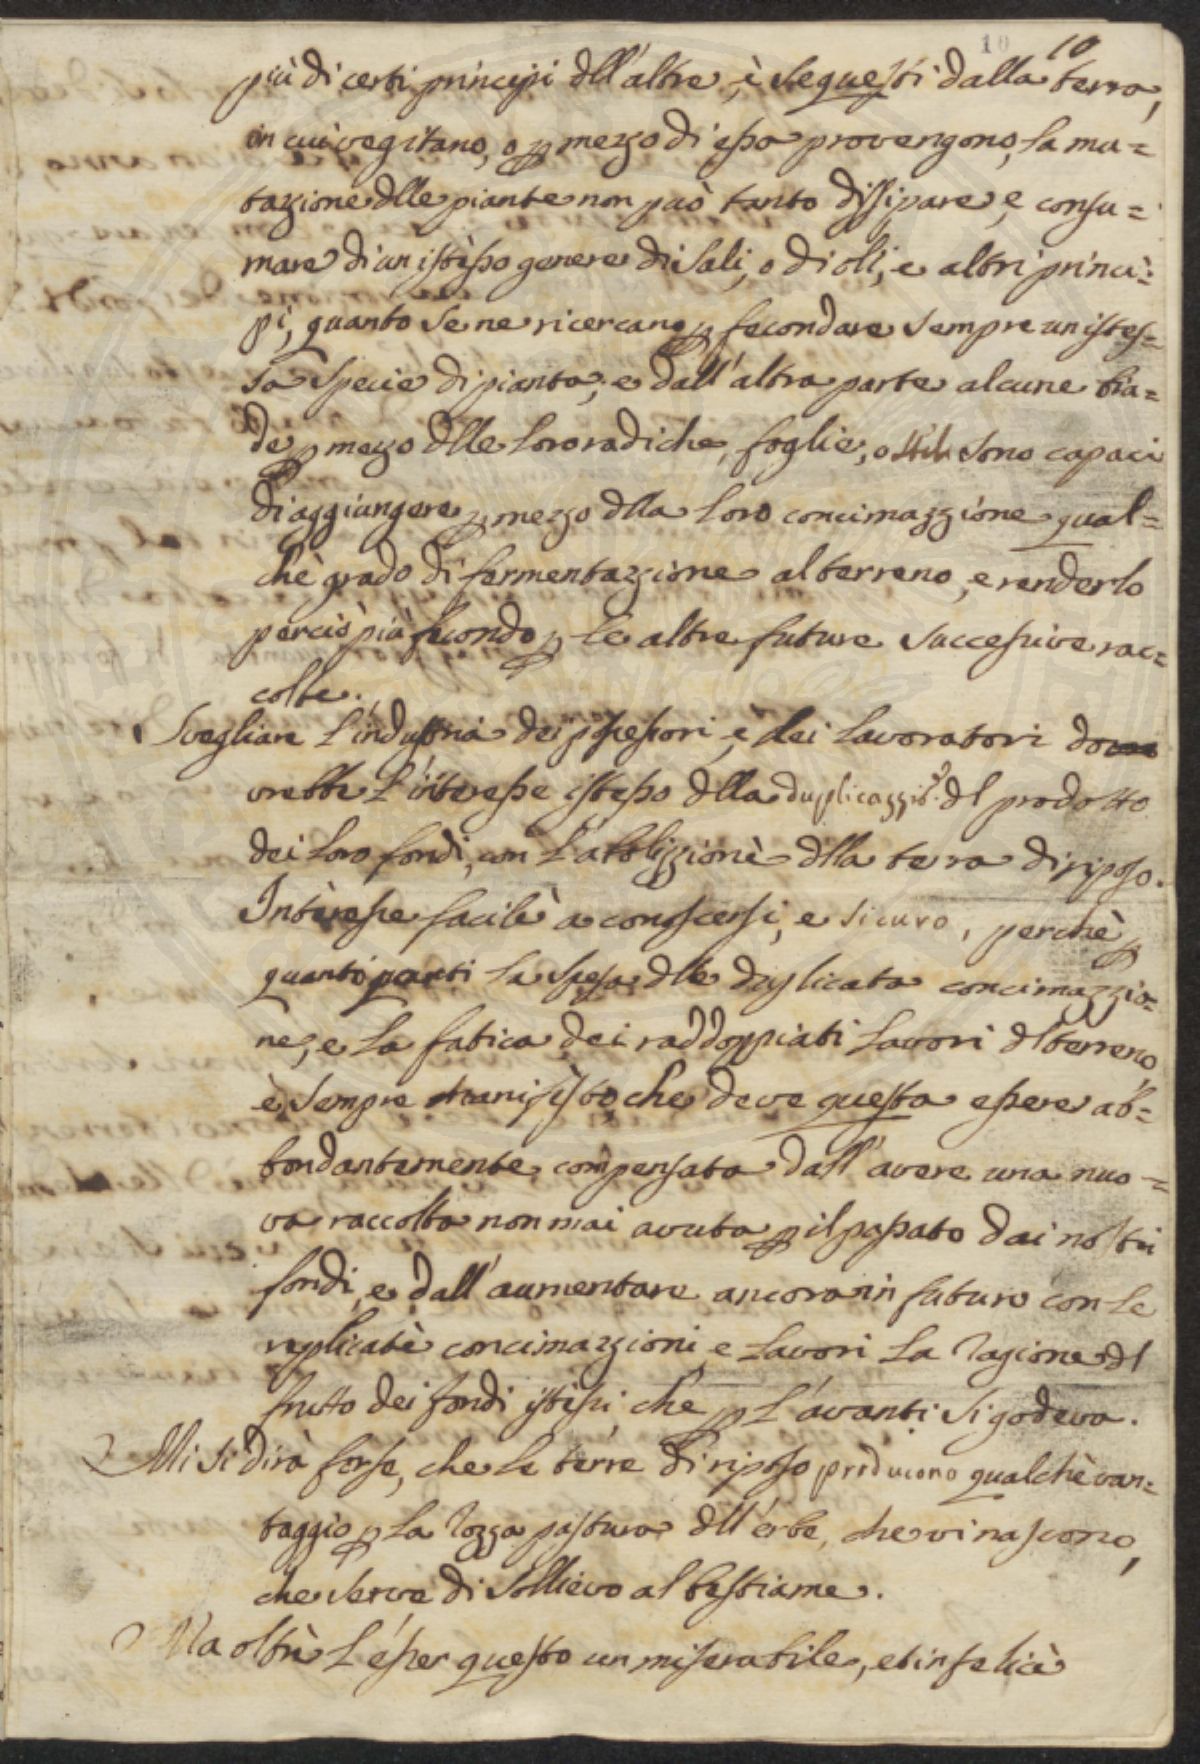 10 10
più di certi principj dll'altre, è se questi dalla terra,
in cui vegitano, o p mezzo di essa provengono, la mu=
tazione dlle piante non può tanto dissipare, e consu=
mare di un istesso genere di sali, o di olj, e altri princi=
pi, quanto se ne ricercano p fecondare sempre un istes=
sa specie di pianta; e dall'altra parte alcune bia=
de p mezo dlle loro radiche, foglie, o stili sono capaci
di aggiungere p mezzo dlla loro concimazzione qual=
chè grado di fermentazzione al terreno, e renderlo
perciò più fecondo p le altre future successive rac=
colte.
Svegliare l'industria dei possessori, è dei lavoratori do
vrebbe l'interesse istesso dlla duplicazzi.e dl prodotto
dei loro fondi, con l'abolizzionè dlla terra di riposo.
Interesse facilè a conoscersi, e sicuro, perchè p
quanto porti la spesa dlle duplicata concimazzio=
ne, e la fatica dei raddoppiati lavori dl terreno
è sempre manifesto, che deve questa essere ab=
bondantemente compensata dall'avere una nuo=
va raccolta non mai avuta p il passato dai nostri
fondi, e dall'aumentare ancora in futuro con le
replicatè concimazzioni, e lavori la ragione dl
frutto dei fondi istessi, che p l'avanti si godeva.
Mi si dirà forse, che le terre di riposo producono qualchè van=
taggio p la rozza pastura dll'erbe, che vi nascono,
che serve di sollievo al bestiame.
Ma oltrè l'esser questo un miserabile, et infelicè